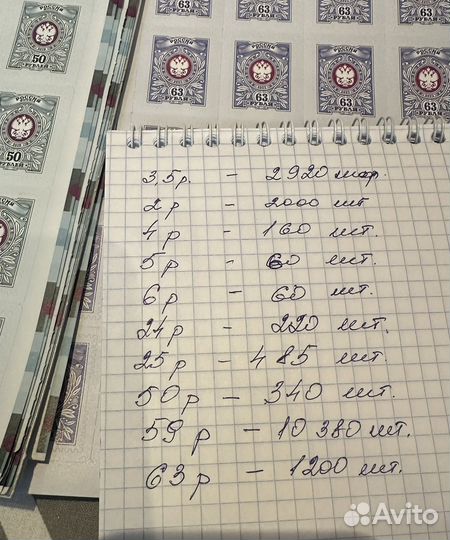 РОССИЯ
50
РУБЛЕЙ
РОССИЯ
63
РУБЛЯ
63
РУБЛЯ
63
РУБЛЯ
63
РУБЛЯ
РОССИЯ
63
РУБЛЯ
РОССИЯ
63
РУБЛЯ
РОССИЯ
63
РУБЛЯ
РОССИЯ
50
3,5р. - 2920 мар.
2р - 2000 шт
4р - 160 шт.
5р - 60 шт.
6р - 60 шт.
24р - 220 шт.
25р - 485 шт.
50р - 340 шт.
59р - 10 380 шт.
63р - 1200 шт.
Avito